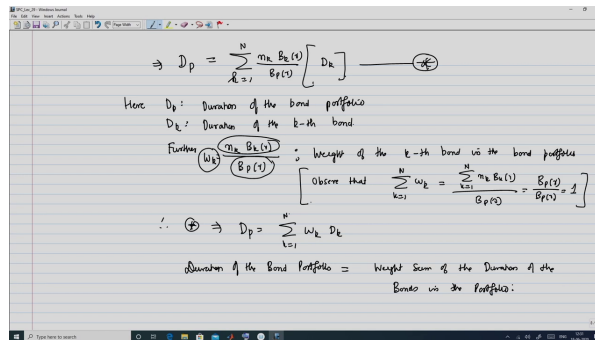 SPC_Lec_39 - Windows Journal
File Edit View Insert Actions Tools Help
Page Width
⇒ D_P = \sum_{k=1}^{N} \frac{n_k B_k(γ)}{B_P(γ)} [ D_k ] ——— (*)
Here D_P : Duration of the bond portfolio
D_k : Duration of the k-th bond
Further w_k = \frac{n_k B_k(γ)}{B_P(γ)} : Weight of the k-th bond in the bond portfolio
[ Observe that \sum_{k=1}^{N} w_k = \frac{\sum_{k=1}^{N} n_k B_k(γ)}{B_P(γ)} = \frac{B_P(γ)}{B_P(γ)} = 1 ]
∴ (*) ⇒ D_P = \sum_{k=1}^{N} w_k D_k
Duration of the Bond Portfolio = Weight Sum of the Duration of the
Bonds in the Portfolio.
Type here to search
ENG